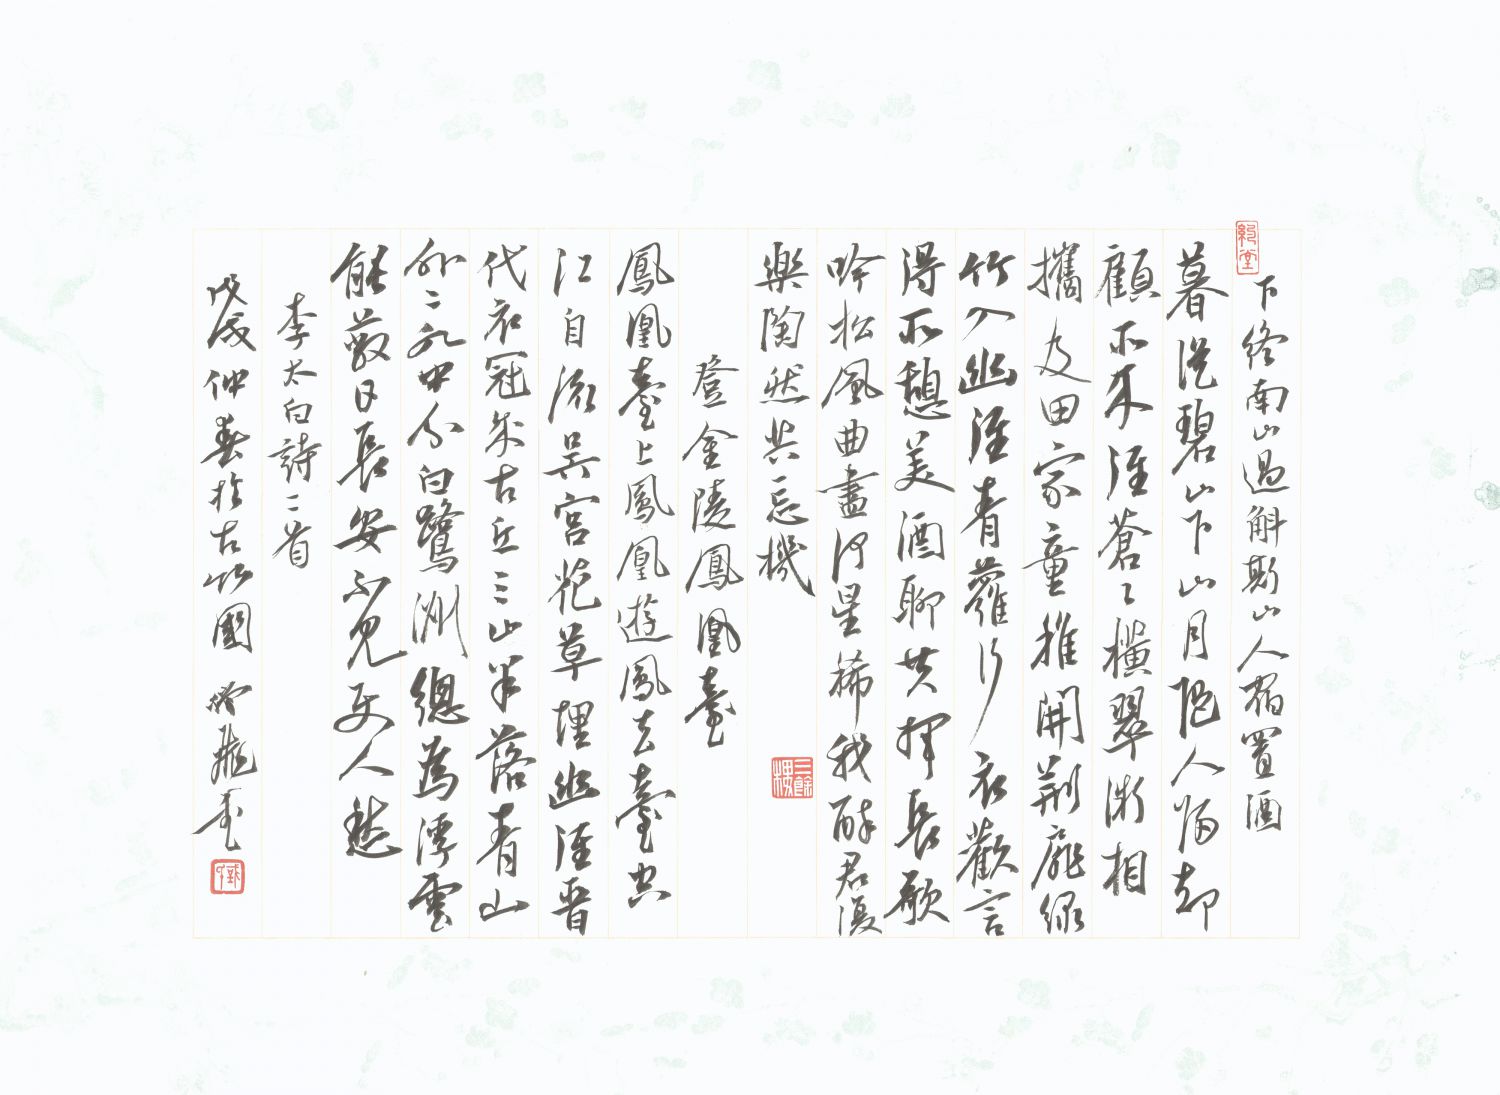 下終南山過斛斯山人宿置酒
暮從碧山下山月隨人歸却
顧所來徑蒼〻橫翠微相
攜及田家童稚開荊扉綠
竹入幽徑青蘿行衣歡言
得所憩美酒聊共揮長歌
吟松風曲盡河星稀我醉君復
樂陶然共忘機
三餘樓
登金陵鳳凰臺
鳳凰臺上鳳凰遊鳳去臺空
江自流吳宮花草埋幽徑晉
代衣冠成古丘三山半落青山
外二水中分白鷺洲總為浮雲
能蔽日長安不見使人愁
李太白詩二首
戊戌仲春於古竹國 書